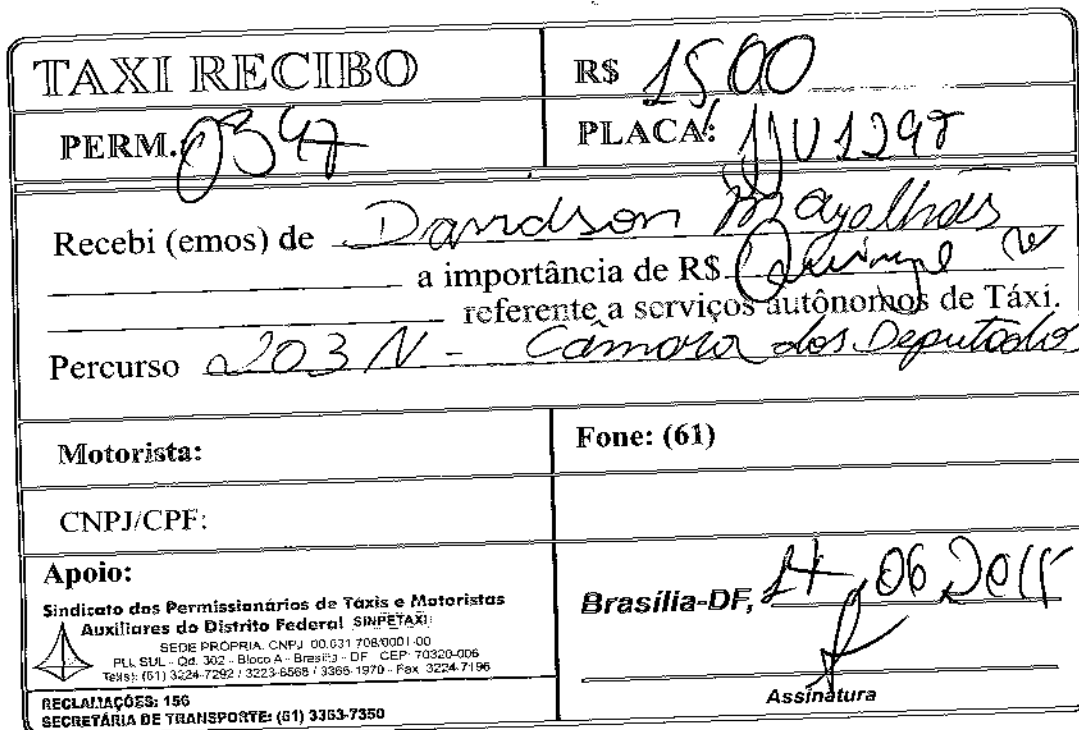 TAXI RECIBO
R$ 15,00
PERM. 0397
PLACA: JJU 1297
Recebi (emos) de Davidson Magalhães
a importância de R$ Quinze
referente a serviços autônomos de Táxi.
Percurso 203 N - Câmara dos Deputados
Motorista:
Fone: (61)
CNPJ/CPF:
Apoio:
Sindicato dos Permissionários de Táxis e Motoristas
Auxiliares do Distrito Federal SINPETAXI
SEDE PRÓPRIA. CNPJ 00.031.708/0001-00
PLL SUL - Qd. 302 - Bloco A - Brasília - DF CEP: 70320-006
Tel(s): (61) 3224-7292 / 3223-6568 / 3366-1970 - Fax 3224-7196
RECLAMAÇÕES: 156
SECRETÁRIA DE TRANSPORTE: (61) 3363-7350
Brasília-DF, 17, 06 2015
Assinatura